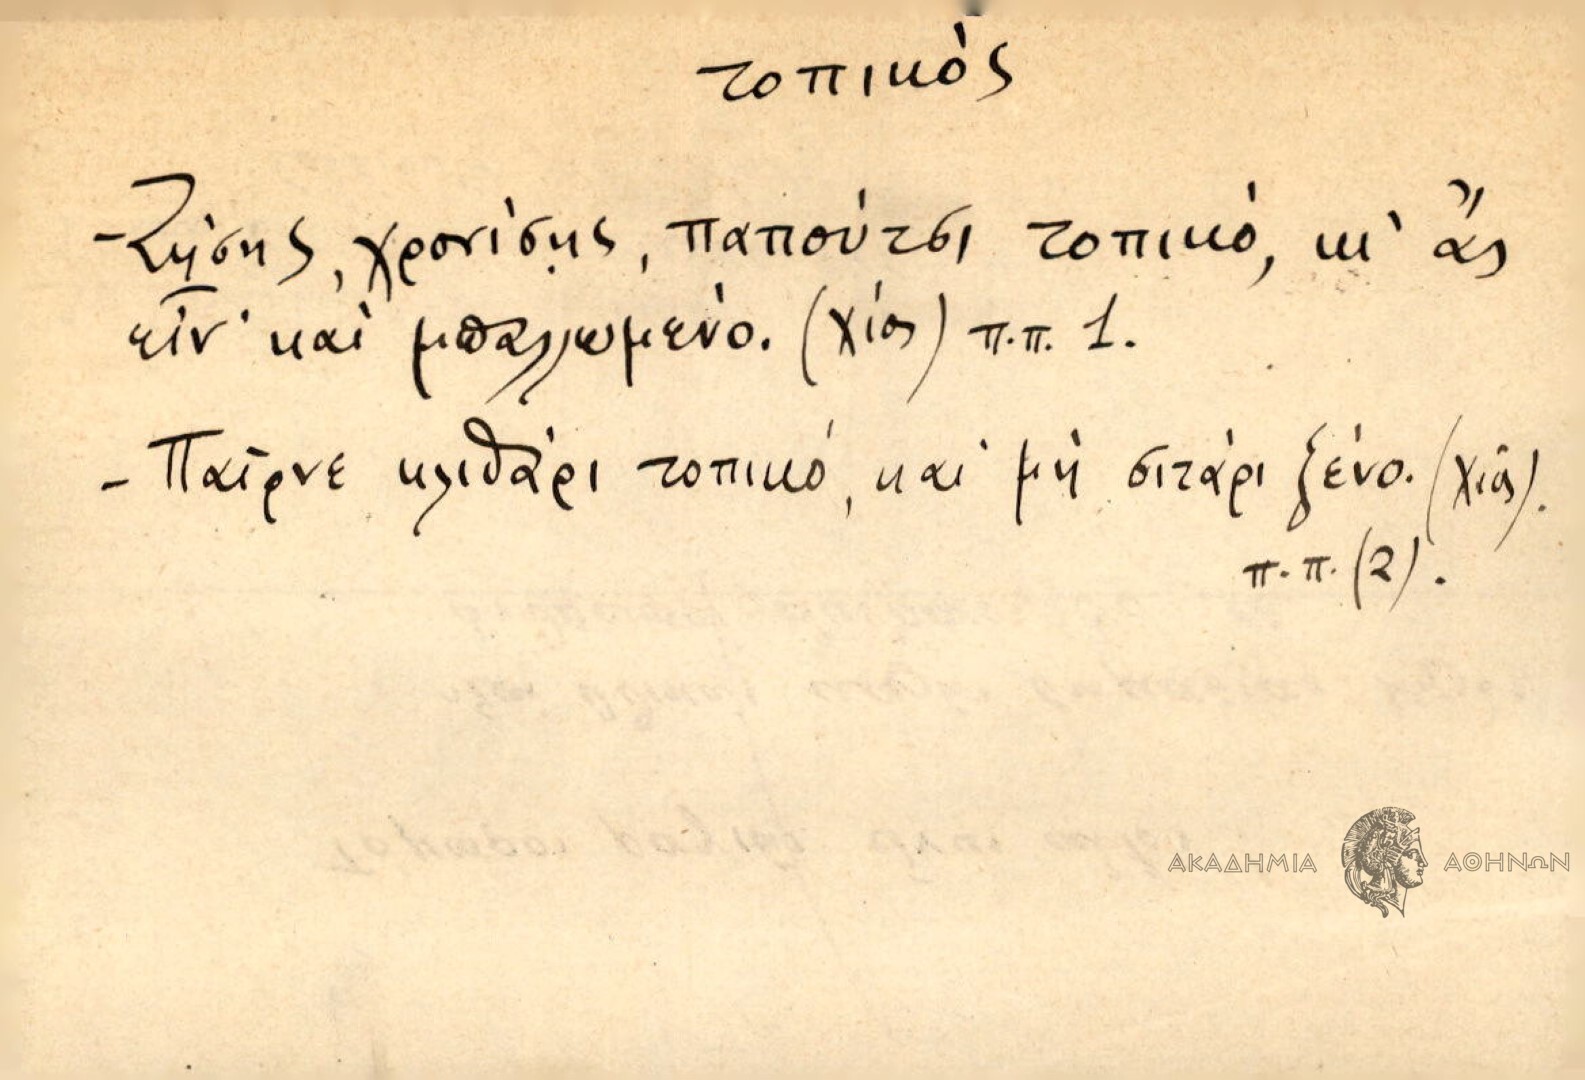 τοπικός
- Ζήσης, χρονίσης, παπούτσι τοπικό, κι' ἄς
εἶν' καὶ μπαλλωμένο. (Χίος) π.π. 1.
- Παῖρνε κλιθάρι τοπικό, καὶ μὴ σιτάρι ξένο. (Χίος).
π.π. (2).
ΑΚΑΔΗΜΙΑ ΑΘΗΝΩΝ